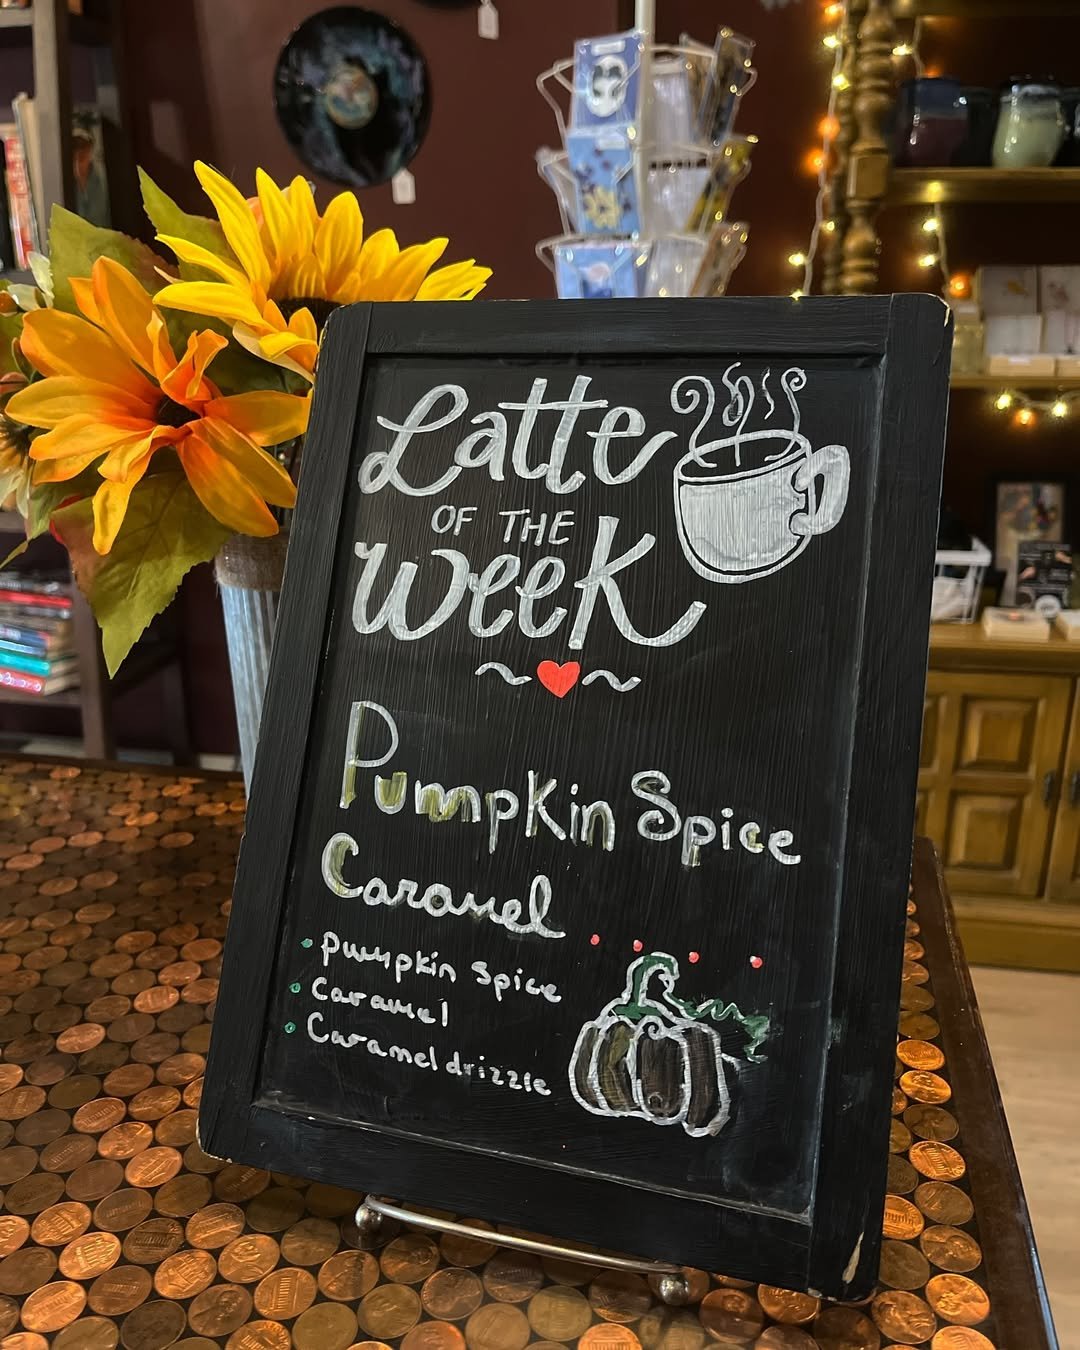 Latte
OF THE
Week
Pumpkin Spice
Caramel
• pumpkin spice
• Caramel
• Caramel drizzle